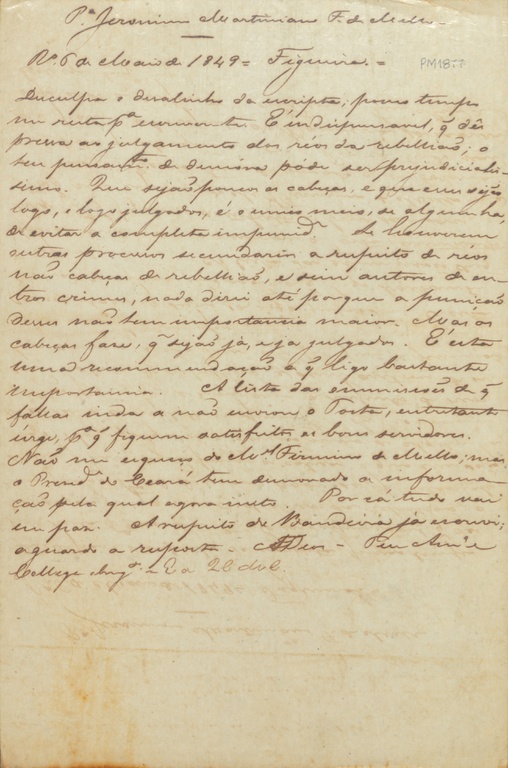 P.ª Jeronimo Martiniano F. de Mello
R.º 6 de Maio de 1849 = Figueira. =
PM1855
Desculpa o desalinho da escripta; pouco tempo
me resta p.ª escrever-te. É indispensavel, q̃ dês
pressa ao julgamento dos réos da rebellião; o
teu pensam.to de demóra póde ser prejudiciali-
simo. Que sejão poucos os cabeças, e que esses sejão
logo, e logo julgados, é o unico meio, se algum ha,
de evitar a completa impunid.e Se houverem
outros processos secundarios a respeito de réos
não cabeças de rebellião, e sim autores de ou-
tros crimes, nada direi até porque a punição
desses não tem importancia maior. Mas os
cabeças faze, q̃ sejão já, e já julgados. É esta
uma recommendação a q̃ ligo bastante
importancia. A lista das commissões de q̃
fallas inda a não enviou o Tosta, entretanto
urge, p.ª q̃ fiquem satisfeitos os bons servidores.
Não me esqueço do M.el Firmino de Mello; mas
o Presid.e do Ceará tem demorado a informa
ção pela qual agora insto. Por cá tudo vai
em paz. A respeito do Bandeira já escrevi;
aguardo a resposta. Adeos - Teu Am.º e
Collega